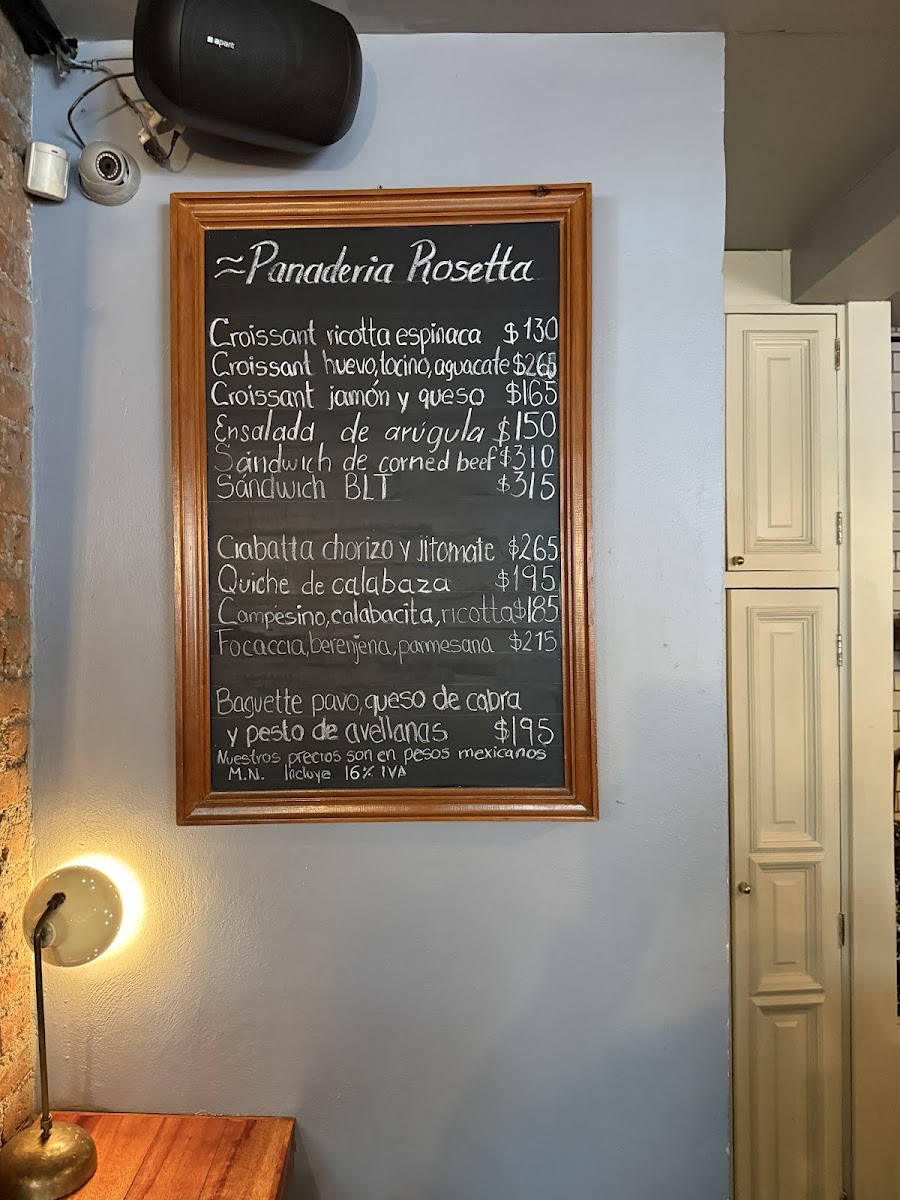 apart
≈Panaderia Rosetta
Croissant ricotta espinaca $130
Croissant huevo, tocino, aguacate $265
Croissant jamón y queso $165
Ensalada de arúgula $150
Sándwich de corned beef $310
Sándwich BLT $315
Ciabatta chorizo y jitomate $265
Quiche de calabaza $195
Campesino, calabacita, ricotta $185
Focaccia, berenjena, parmesana $215
Baguette pavo, queso de cabra
y pesto de avellanas $195
Nuestros precios son en pesos mexicanos
M.N. Incluye 16% IVA